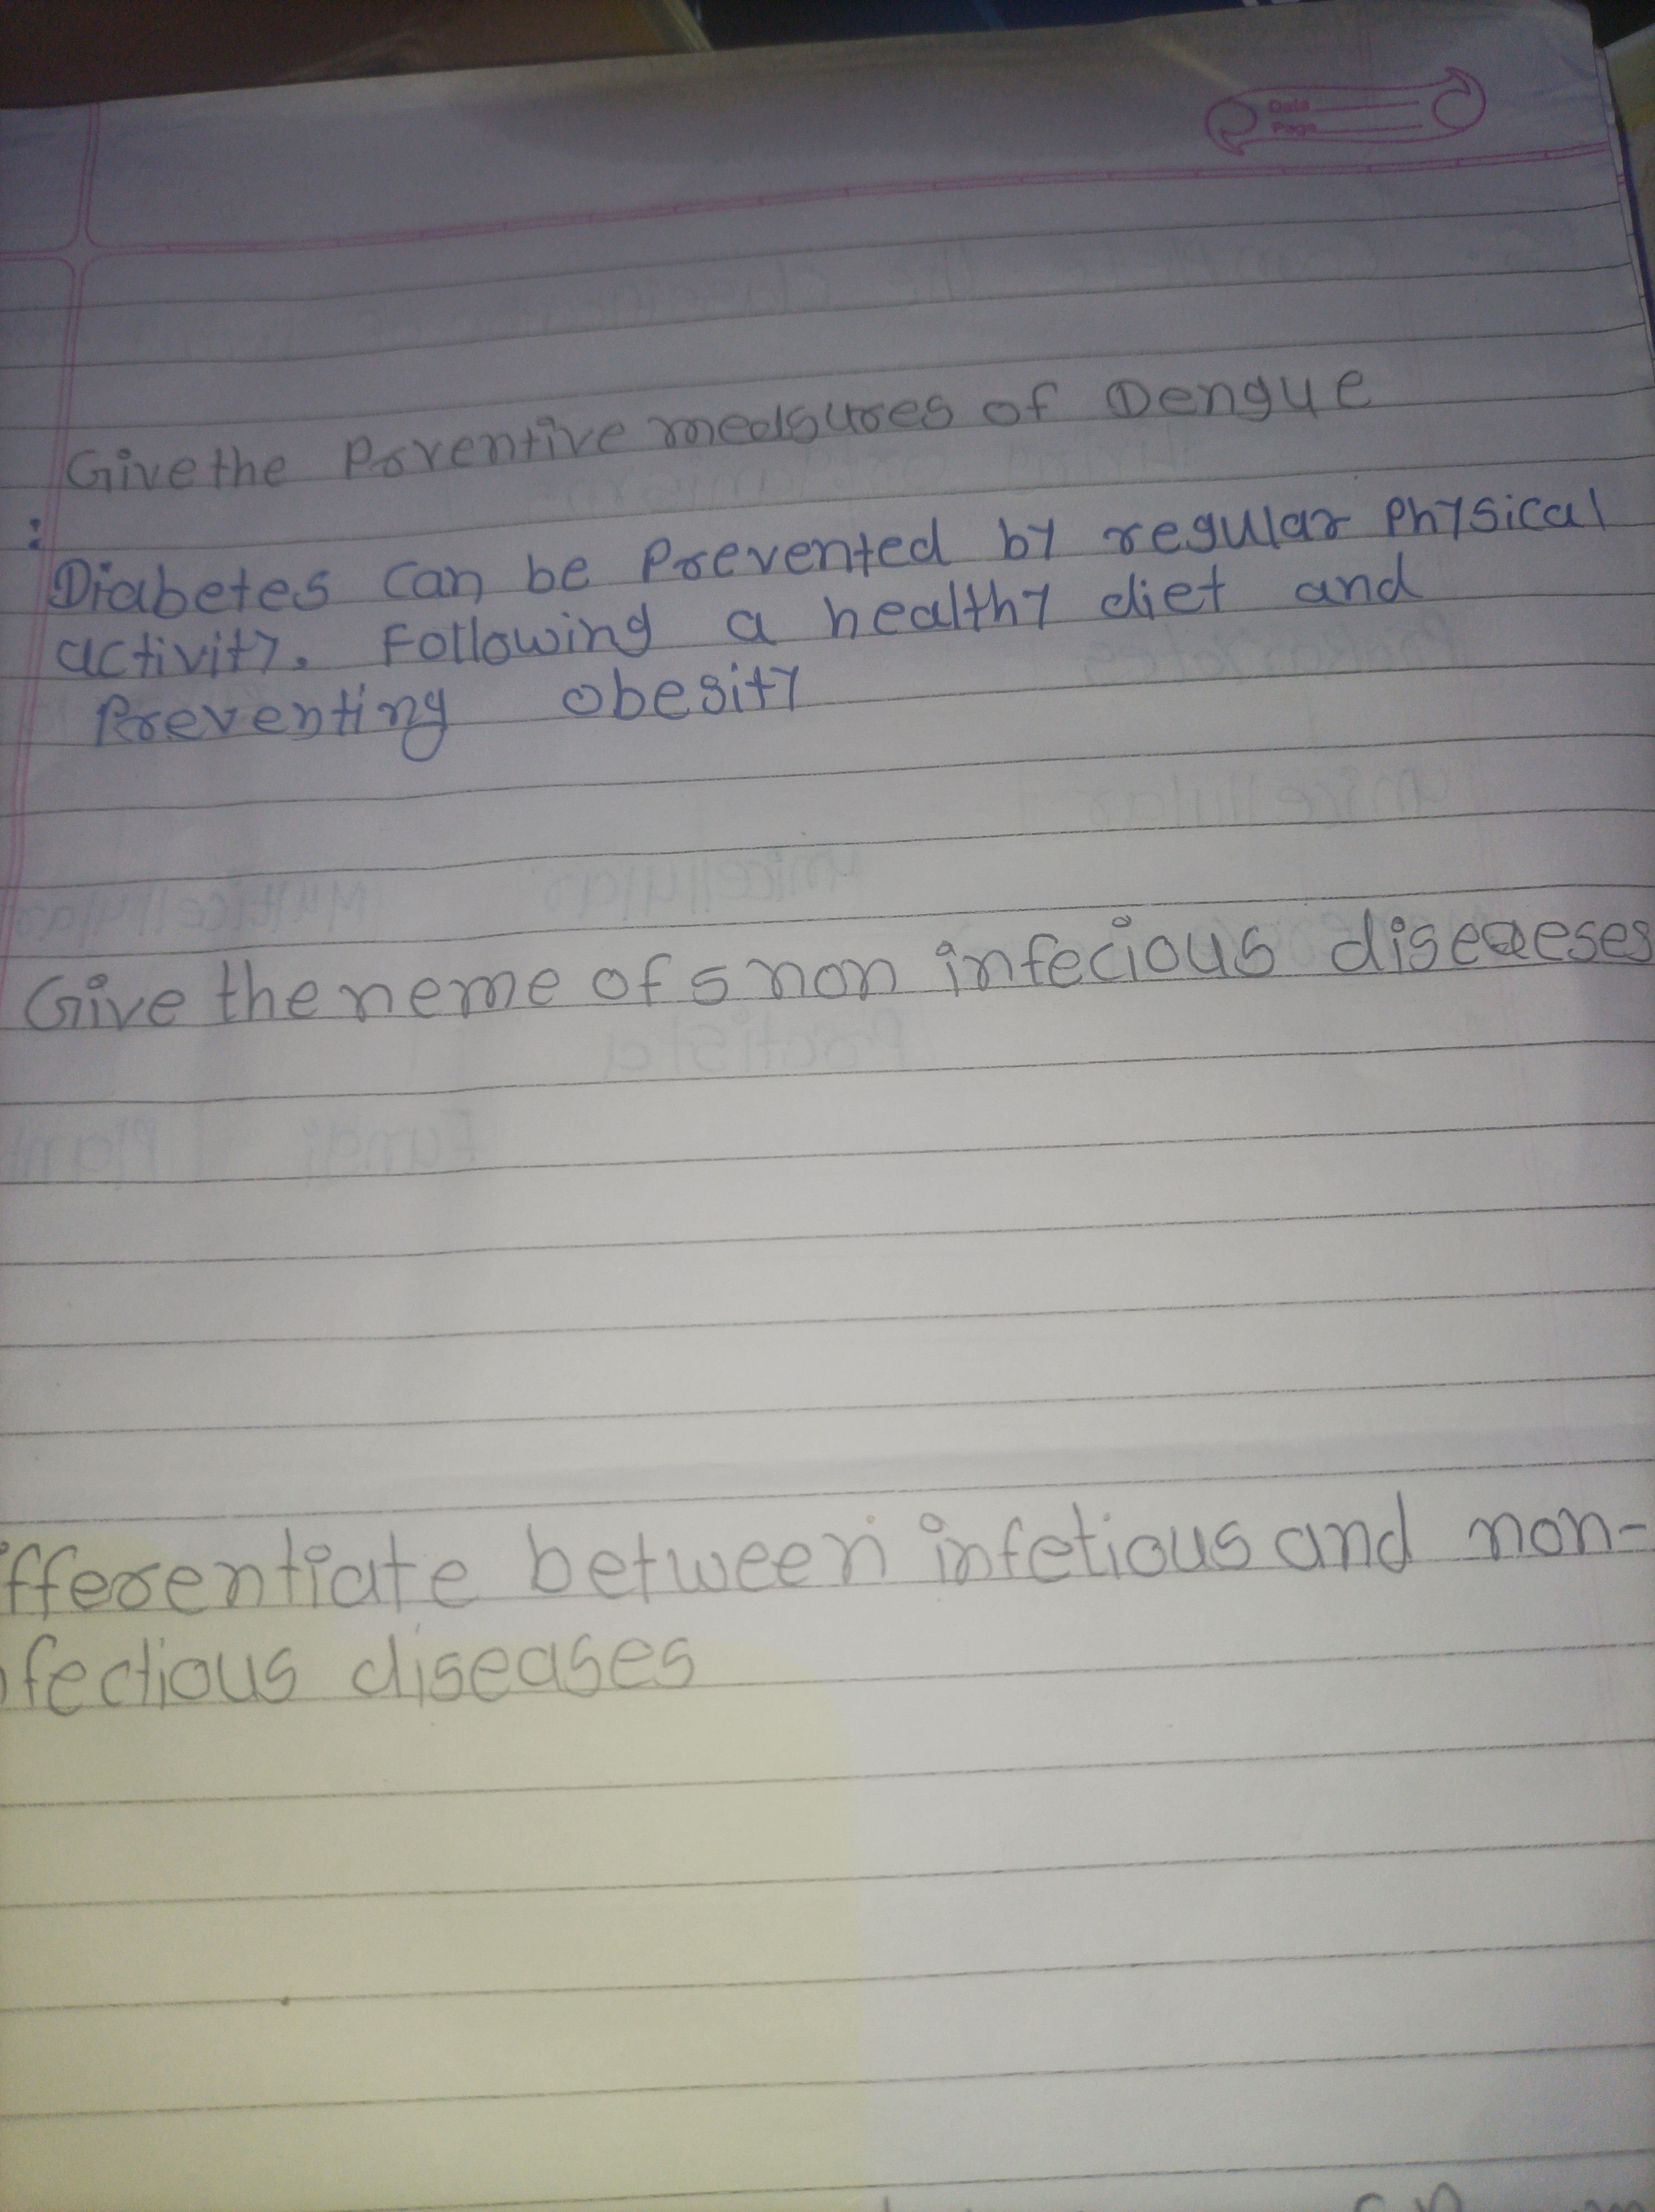 Date
Page
Give the Porventive measures of Dengue
:
Diabetes can be Prevented by regular Physical
activity. Following a healthy diet and
Preventing obesity
Give the neme of 5 non infecious diseaeses
fferentiate between infetious and non-
fectious diseases